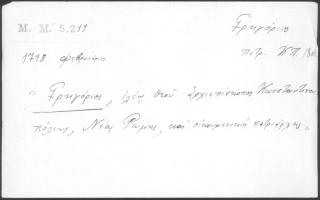 Μ. Μ. 5.211
Γρηγόριος
πατρ. Κ.Π.
1798 φεβρουαρ.
"Γρηγόριος, ἐλέῳ Θεοῦ ἀρχιεπίσκοπος Κωνσταντινου
πόλεως, Νέας Ρώμης, καὶ οἰκουμενικὸς πατριάρχης"